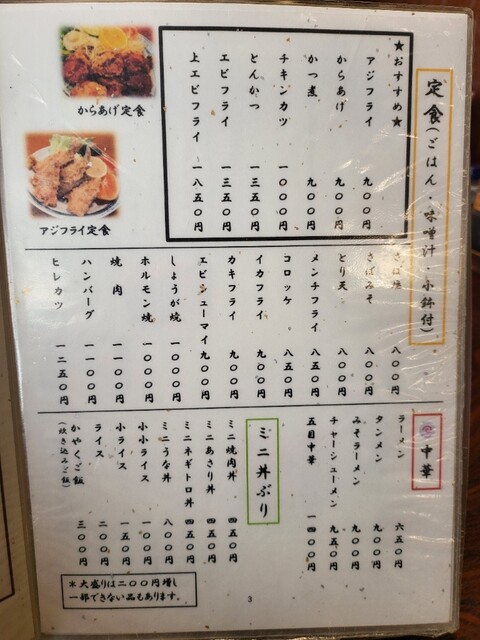 定食(ごはん・味噌汁・小鉢付)
★おすすめ★
アジフライ 九〇〇円
からあげ 九〇〇円
かつ煮 九〇〇円
チキンカツ 一〇〇〇円
とんかつ 一三五〇円
エビフライ 一三五〇円
上エビフライ 一八五〇円
からあげ定食
アジフライ定食
さば塩 八〇〇円
さばみそ 八〇〇円
とり天 八〇〇円
メンチフライ 八五〇円
コロッケ 八五〇円
イカフライ 九〇〇円
カキフライ 九〇〇円
エビシューマイ 九〇〇円
しょうが焼 一〇〇〇円
ホルモン焼 一〇〇〇円
焼肉 一一〇〇円
ハンバーグ 一一〇〇円
ヒレカツ 一二五〇円
中華
ラーメン 六五〇円
タンメン 九〇〇円
みそラーメン 九〇〇円
チャーシューメン 九五〇円
五目中華 一四〇〇円
ミニ丼ぶり
ミニ焼肉丼 四五〇円
ミニあさり丼 四五〇円
ミニネギトロ丼 四五〇円
ミニうな丼 八〇〇円
小小ライス 一〇〇円
小ライス 一五〇円
ライス 二〇〇円
かやくご飯 三〇〇円
(炊き込みご飯)
*大盛りは二〇〇円増し
一部できない品もあります。
3